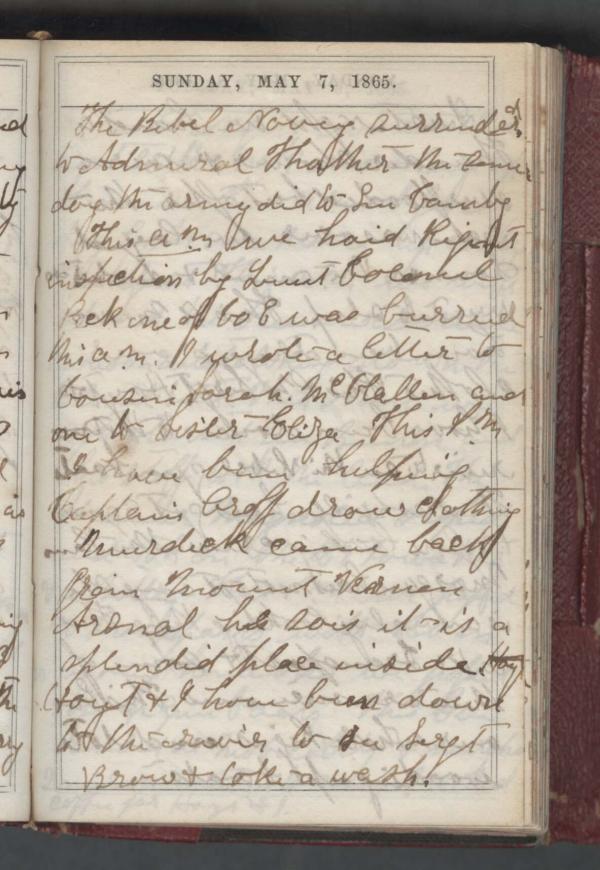 SUNDAY, MAY 7, 1865.
The Rebel Navey surrinderd
to Admiral Thather the same
day the army did to Gen Canby
This a m we haid Rigint
inspection by Leut Colonel
Pek one of Co E was burried
this a.m. I wrote a letter to
Cousin Sarah. McClallen and
one to Sister Eliza This P. M
I have been helping
Captain Croff draw clothing
Murdick came back
from Mount Vernon
Arsnal he sais it is a
splendid place inside.
Hoyt & I have been down
to the river to see Sergt
Brow & toke a wash.